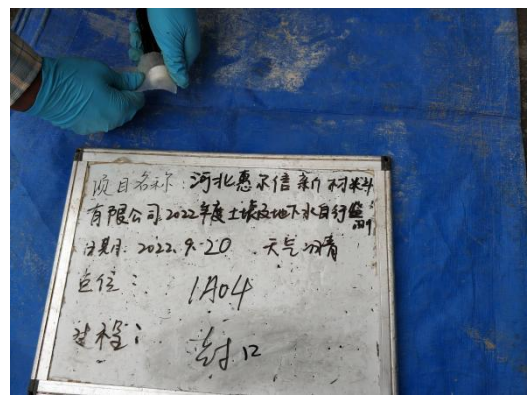 项目名称:河北惠尔信新材料
有限公司2022年度土壤及地下水自行监测
日期:2022.9.20 天气:晴
点位: 1A04
过程: 封口